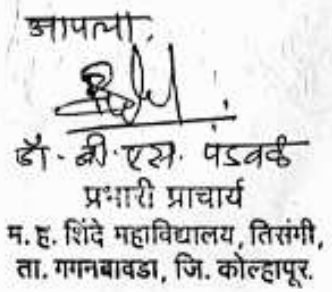 आपला,
डॉ. बी. एस. पडवळ
प्रभारी प्राचार्य
म. ह. शिंदे महाविद्यालय, तिसंगी,
ता. गगनबावडा, जि. कोल्हापूर.